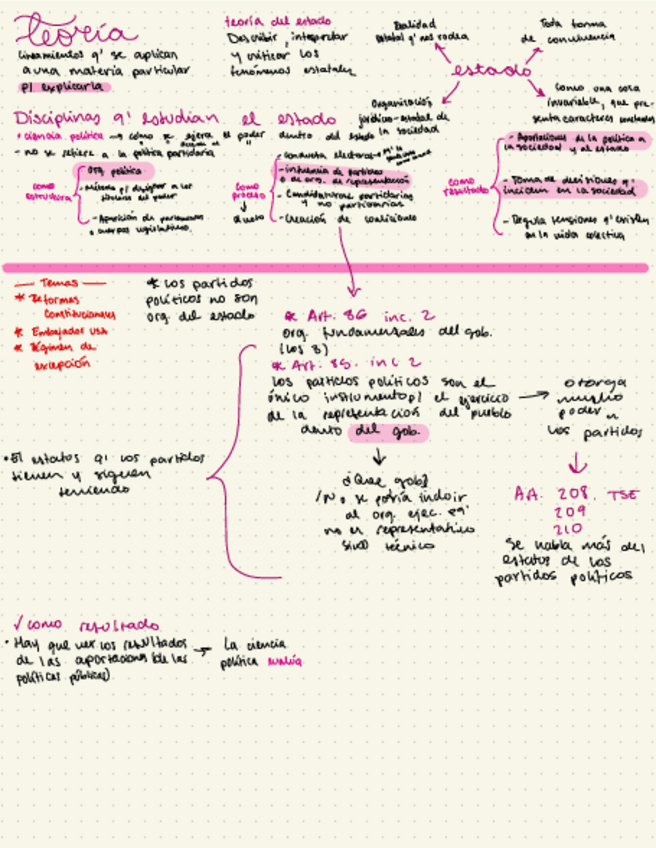 teoría
lineamientos q' se aplican
a una materia particular
p/ explicarla
teoría del estado
Describir, interpretar
y criticar los
fenómenos estatales
Realidad
estatal q' nos rodea
Toda forma
de convivencia
estado
Organización
jurídico-estatal de
la sociedad
como una cosa
invariable, que pre-
senta caracteres constantes
Disciplinas q' estudian el estado
* ciencia política → cómo se ejerce el poder dentro del estado
- no se refiere a la política partidaria
como
estructura
Org. política
como
proceso
↓
- conducta electoral
- influencia de partidos
o de org. de representación
- Candidaturas partidarias
y no partidarias
- Creación de coaliciones
como
resultado
- Aportaciones de la política a
la sociedad y al estado
- Toma de decisiones q'
inciden en la sociedad
- Regula tensiones q' existen
en la vida colectiva
— Temas —
* Reformas
constitucionales
* Embajador USA
* Régimen de
excepción
* Los partidos
políticos no son
org. del estado
* Art. 86 inc. 2
org. fundamentales del gob.
(los 3)
* Art. 85. inc 2
los partidos políticos son el
único instrumento p/ el ejercicio
de la representación del pueblo
dentro del gob.
→ otorga
mucho
poder a
los partidos
↓
AA. 208. TSE
209
210
se habla más del
estatus de los
partidos políticos
• El estatus q' los partidos
tienen y siguen
teniendo
↓
¿Que gob?
/No se podría incluir
al org. ejec. pq'
no es representativo
sino técnico
✓ como resultado
• Hay que ver los resultados
de las aportaciones (de las
políticas públicas)
→ La ciencia
política evalúa